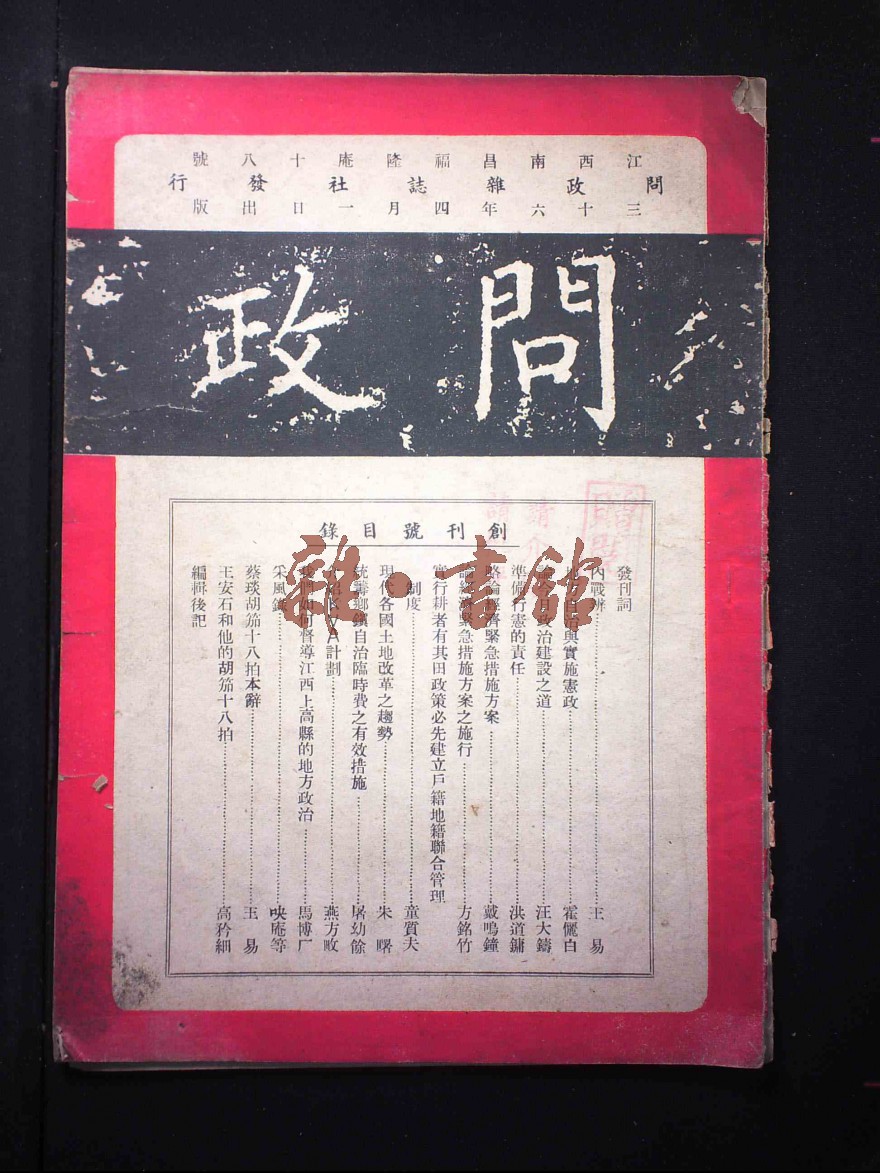 江西南昌福隆庵十八號
問政雜誌社發行
三十六年四月一日出版
問政
創刊號目錄
發刊詞
內戰辨 王易
地方自治與實施憲政 霍儷白
今日政治建設之道 汪大鑄
準備行憲的責任 洪道鏞
略論經濟緊急措施方案 戴鳴鐘
論經濟緊急措施方案之施行 方銘竹
實行耕者有其田政策必先建立戶籍地籍聯合管理
制度 童質夫
現代各國土地改革之趨勢 朱曙
統籌鄉鎮自治臨時費之有效措施 屠幼餘
計劃 燕方畋
我們如何督導江西上高縣的地方政治 馬博厂
采風錄 映庵等
蔡琰胡笳十八拍本辭 王易
王安石和他的胡笳十八拍 高矜細
編輯後記
雜·書館